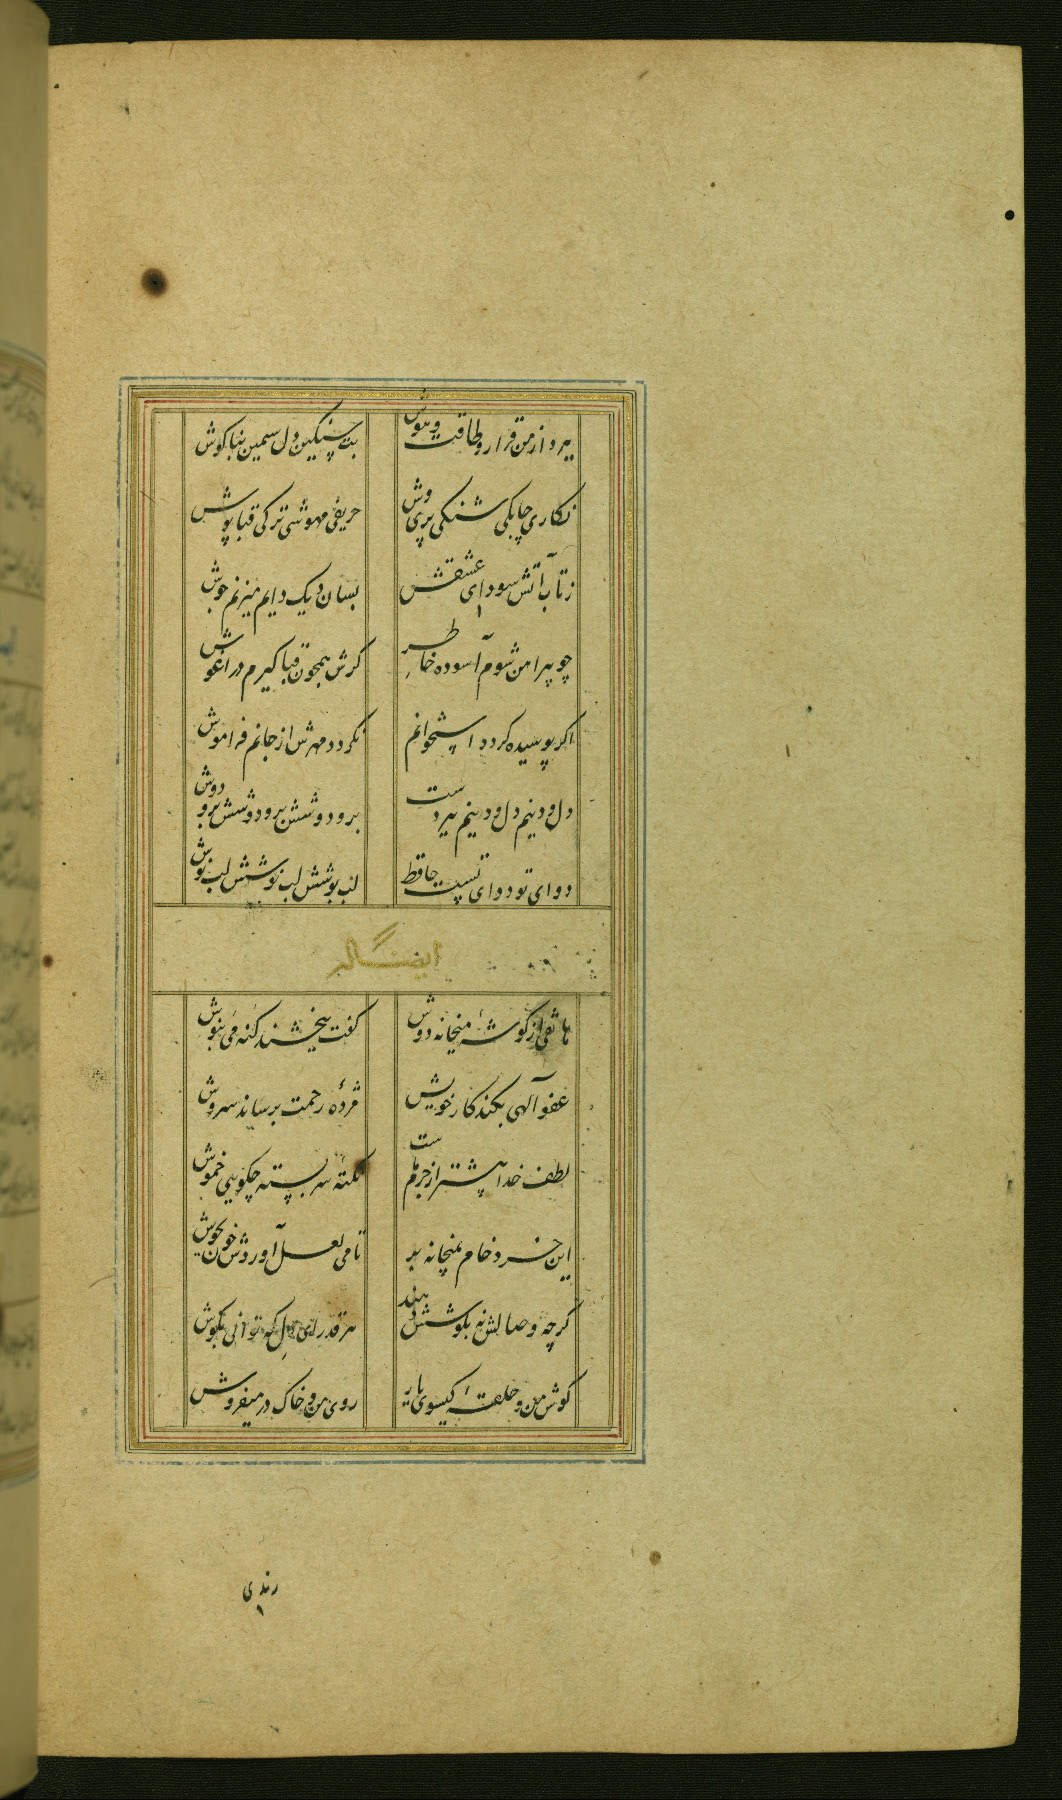 ببرد از من قرار و طاقت و هوش
بت سنکین دل سیمین بناکوش
نکاری چابکی شنکی پری وش
حریفی مهوشی ترکی قباپوش
ز تاب آتش سودای عشقش
بسان دیک دایم میزنم جوش
چو پیراهن شوم آسوده خاطر
کرش همچون قبا کیرم در اغوش
اکر پوسیده کردد استخوانم
نکردد مهرش از جانم فراموش
دل و دینم دل و دینم ببردست
بر و دوشش بر و دوشش بر و دوش
دوای تو دوای تست حافظ
لب نوشش لب نوشش لب نوش
ایضا له
هاتفی از کوشهٔ میخانه دوش
کفت ببخشند کنه می بنوش
عفو آلهی بکند کار خویش
مژدهٔ رحمت برساند سروش
لطف خدا بیشتر از جرم ماست
نکتهٔ سر بسته چکویی خموش
این خرد خام بمیخانه بر
تا می لعل آوردش خون بجوش
کرچه وصالش نه بکوشش دهند
هر قدر ای دل که توانی بکوش
کوش من و حلقهٔ کیسوی یار
روی من و خاک در میفروش
رندی